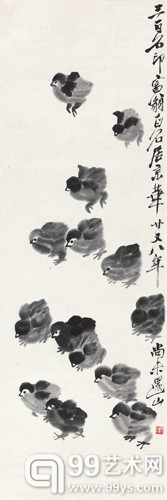 三百石印富翁白石居京華廿又八年
尚未還山
99艺术网
www.99ys.com